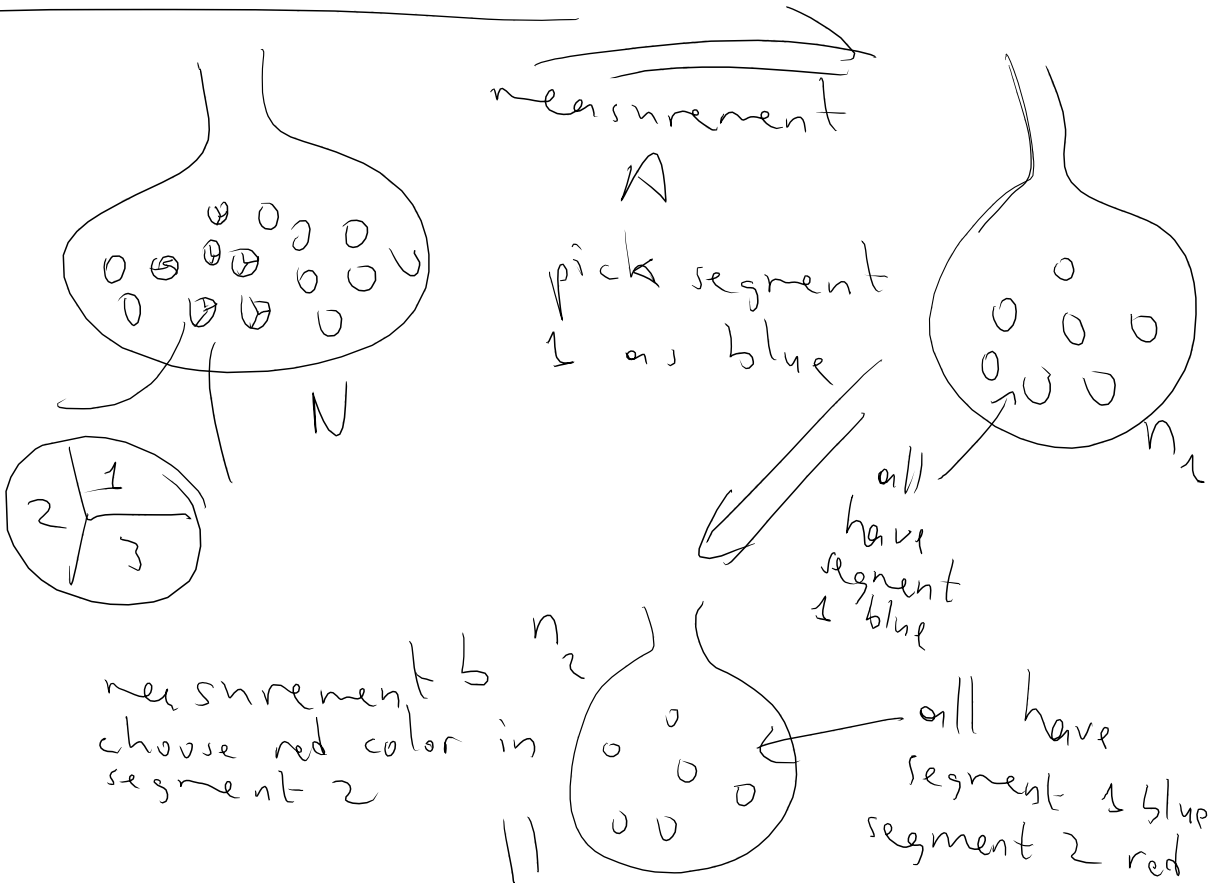 measurement
A
pick segment
1 as blue
N
1
2
3
n1
all
have
segment
1 blue
n2
measurement b
choose red color in
segment 2
all have
segment 1 blue
segment 2 red